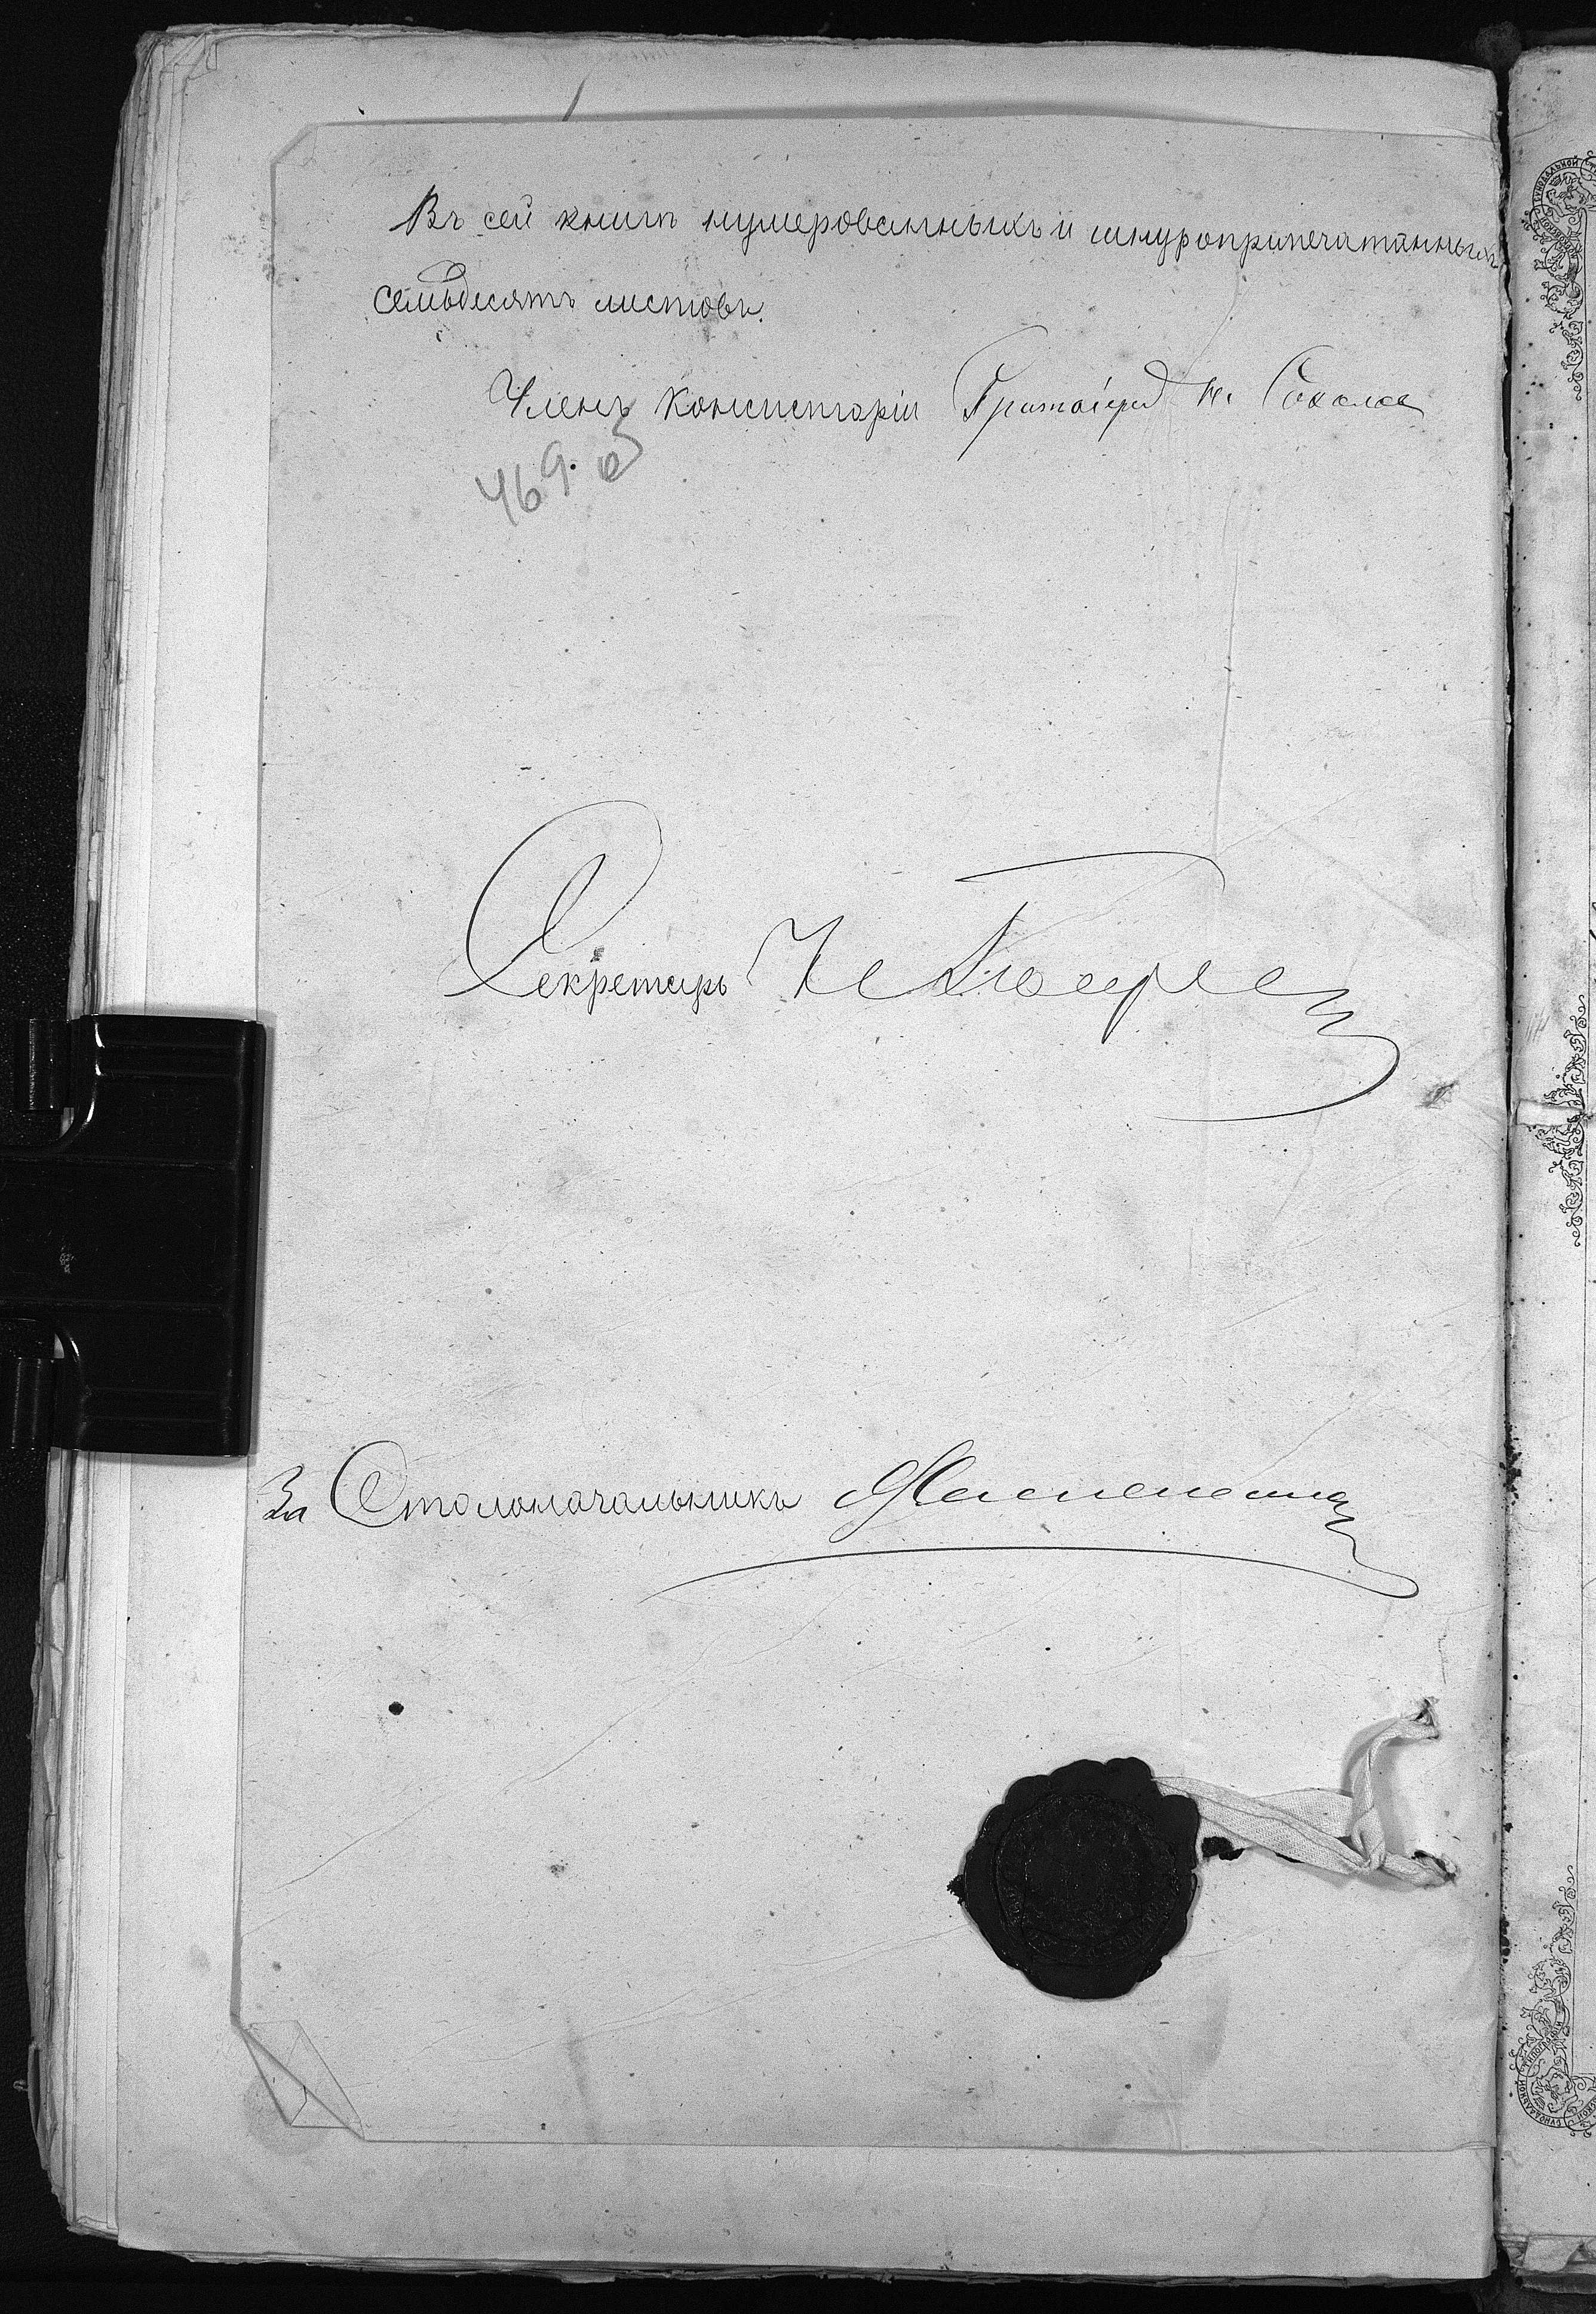 Въ сей книгѣ нумерованныхъ и шнуроприпечатанныхъ
семьдесятъ листовъ.
Членъ Консисторіи
469.
Секретарь
За Столоначальникъ